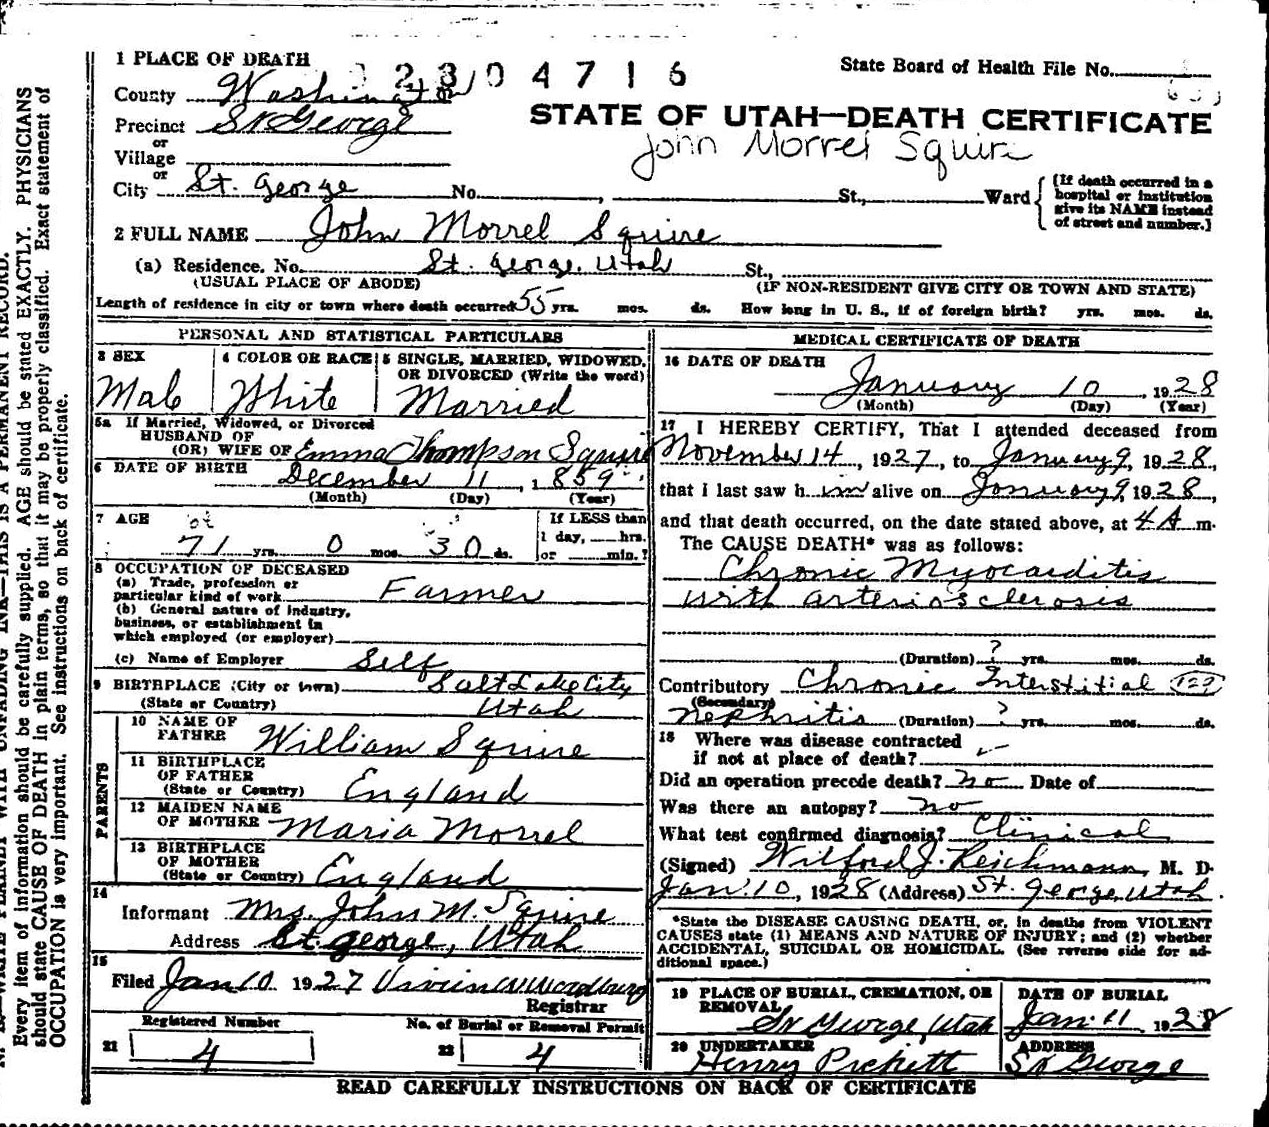 1 PLACE OF DEATH
2304716
State Board of Health File No.
County Washington
STATE OF UTAH—DEATH CERTIFICATE
Precinct St George
John Morrel Squire
or
Village
or
City St. George No. , St., Ward
{If death occurred in a
hospital or institution
give its NAME instead
of street and number.}
2 FULL NAME John Morrel Squire
(a) Residence. No. St. George, Utah St.,
(USUAL PLACE OF ABODE) (IF NON-RESIDENT GIVE CITY OR TOWN AND STATE)
Length of residence in city or town where death occurred 55 yrs. mos. ds. How long in U. S., if of foreign birth? yrs. mos. ds.
PERSONAL AND STATISTICAL PARTICULARS
3 SEX
Male
4 COLOR OR RACE
White
5 SINGLE, MARRIED, WIDOWED,
OR DIVORCED (Write the word)
Married
5a If Married, Widowed, or Divorced
HUSBAND OF
(OR) WIFE OF Emma Thompson Squire
6 DATE OF BIRTH
December 11, 1859
(Month) (Day) (Year)
7 AGE
71 yrs. 0 mos. 30 ds.
If LESS than
1 day, hrs.
or min.?
8 OCCUPATION OF DECEASED
(a) Trade, profession or
particular kind of work Farmer
(b) General nature of industry,
business, or establishment in
which employed (or employer)
(c) Name of Employer Self
9 BIRTHPLACE (City or town) Salt Lake City
(State or Country) Utah
PARENTS
10 NAME OF
FATHER William Squire
11 BIRTHPLACE
OF FATHER
(State or Country) England
12 MAIDEN NAME
OF MOTHER Maria Morrel
13 BIRTHPLACE
OF MOTHER
(State or Country) England
14
Informant Mrs. John M. Squire
Address St. George, Utah
15
Filed Jan 10 1927 Vivian W. Woodbury
Registrar
Registered Number
21 4
No. of Burial or Removal Permit
22 4
MEDICAL CERTIFICATE OF DEATH
16 DATE OF DEATH
January 10, 1928
(Month) (Day) (Year)
17 I HEREBY CERTIFY, That I attended deceased from
November 14, 1927, to January 9, 1928,
that I last saw him alive on January 9, 1928,
and that death occurred, on the date stated above, at 4 A m.
The CAUSE DEATH* was as follows:
Chronic Myocarditis
with arteriosclerosis
(Duration) ? yrs. mos. ds.
Contributory Chronic Interstitial 129
(Secondary)
Nephritis (Duration) ? yrs. mos. ds.
18 Where was disease contracted
if not at place of death?
Did an operation precede death? no Date of
Was there an autopsy? no
What test confirmed diagnosis? Clinical
(Signed) Wilford J. Reichmann, M. D.
Jan. 10, 1928 (Address) St. George, Utah.
*State the DISEASE CAUSING DEATH, or, in deaths from VIOLENT
CAUSES state (1) MEANS AND NATURE OF INJURY; and (2) whether
ACCIDENTAL, SUICIDAL OR HOMICIDAL. (See reverse side for ad-
ditional space.)
19 PLACE OF BURIAL, CREMATION, OR
REMOVAL
St George, Utah
DATE OF BURIAL
Jan. 11 1928
20 UNDERTAKER
Henry Pickett
ADDRESS
St George
READ CAREFULLY INSTRUCTIONS ON BACK OF CERTIFICATE
WRITE PLAINLY WITH UNFADING INK—THIS IS A PERMANENT RECORD.
Every item of information should be carefully supplied. AGE should be stated EXACTLY. PHYSICIANS
should state CAUSE OF DEATH in plain terms, so that it may be properly classified. Exact statement of
OCCUPATION is very important. See instructions on back of certificate.